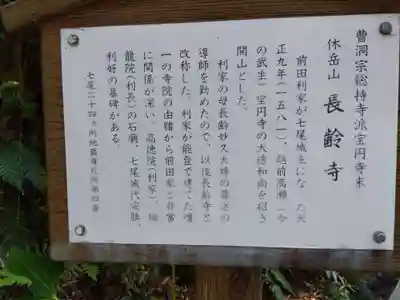 曹洞宗総持寺派宝円寺末
休岳山 長齢寺
前田利家が七尾城主になった天
正九年(一五八一)、越前高瀬(今
の武生)宝円寺の大透和尚を招き
開山とした。
利家の母長齢妙久大姉の葬送の
導師を勤めたので、以後長齢寺と
改称した。利家が能登で建てた唯
一の寺院の由緒から前田家と非常
に関係が深い。高徳院(利家)、瑞
龍院(利長)の石廟、七尾城代安勝、
利好の墓碑がある。
七尾二十四ヶ所地蔵尊札所第四番